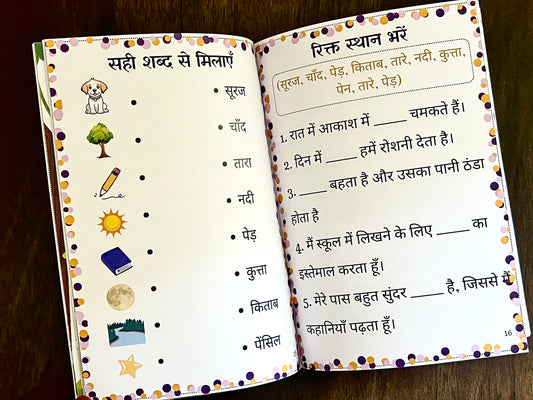 सही शब्द से मिलाएँ
सूरज
चाँद
तारा
नदी
पेड़
कुत्ता
किताब
पेंसिल
रिक्त स्थान भरें
(सूरज, चाँद, पेड़, किताब, तारे, नदी, कुत्ता,
पेन, तारे, पेड़)
1. रात में आकाश में _____ चमकते हैं।
2. दिन में _____ हमें रोशनी देता है।
3. _____ बहता है और उसका पानी ठंडा
होता है
4. मैं स्कूल में लिखने के लिए _____ का
इस्तेमाल करता हूँ।
5. मेरे पास बहुत सुंदर _____ है, जिससे मैं
कहानियाँ पढ़ता हूँ।
16